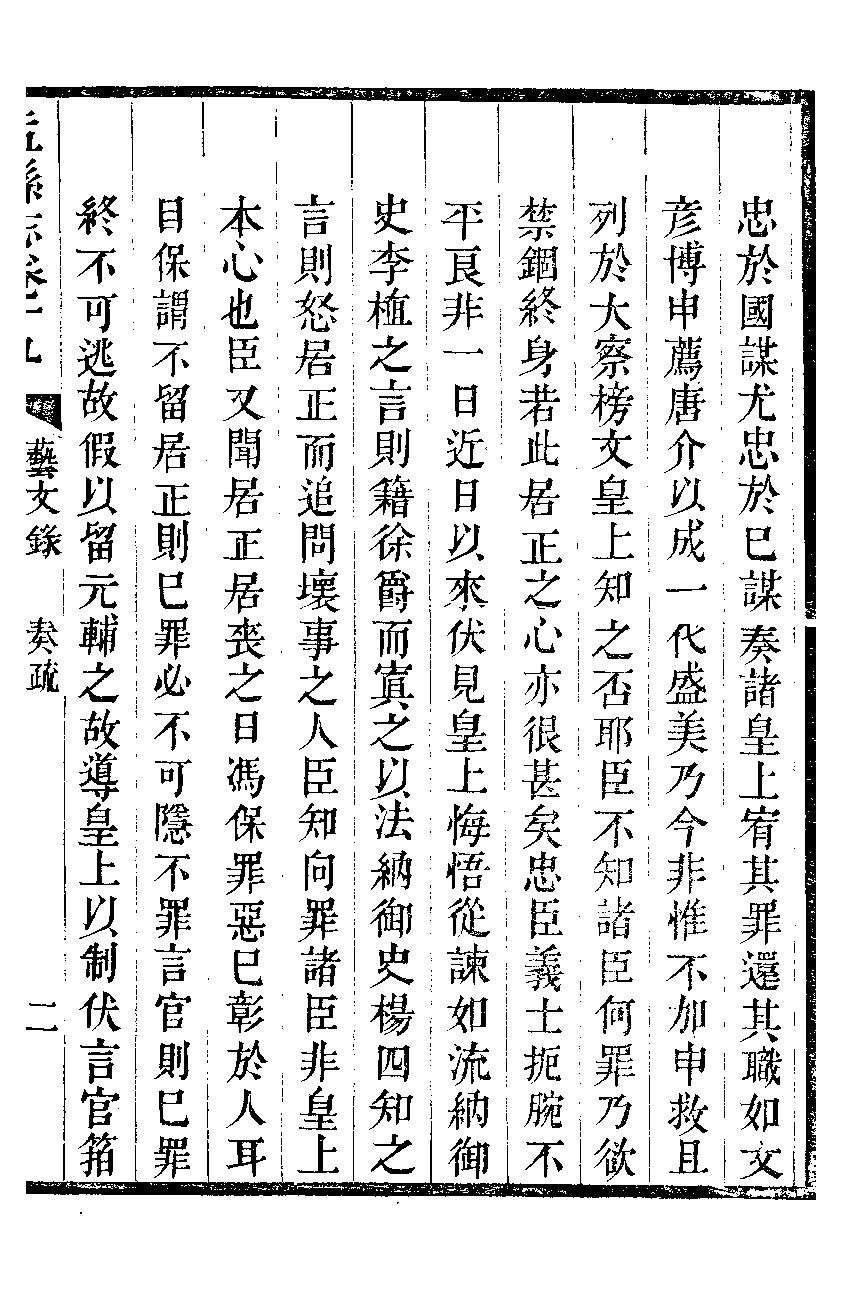 忠於國謀尤忠於巳謀奏諸皇上宥其罪還其職如文
彥博申薦唐介以成一代盛美乃今非惟不加申救且
列於大察榜文皇上知之否耶臣不知諸臣何罪乃欲
禁錮終身若此居正之心亦很甚矣忠臣義士扼腕不
平良非一日近日以來伏見皇上悔悟從諫如流納御
史李植之言則籍徐爵而寘之以法納御史楊四知之
言則怒居正而追問壞事之人臣知向罪諸臣非皇上
本心也臣又聞居正居喪之日馮保罪惡巳彰於人耳
目保謂不留居正則巳罪必不可隱不罪言官則巳罪
終不可逃故假以留元輔之故導皇上以制伏言官箝
縣志卷十九 藝文錄 奏疏 二